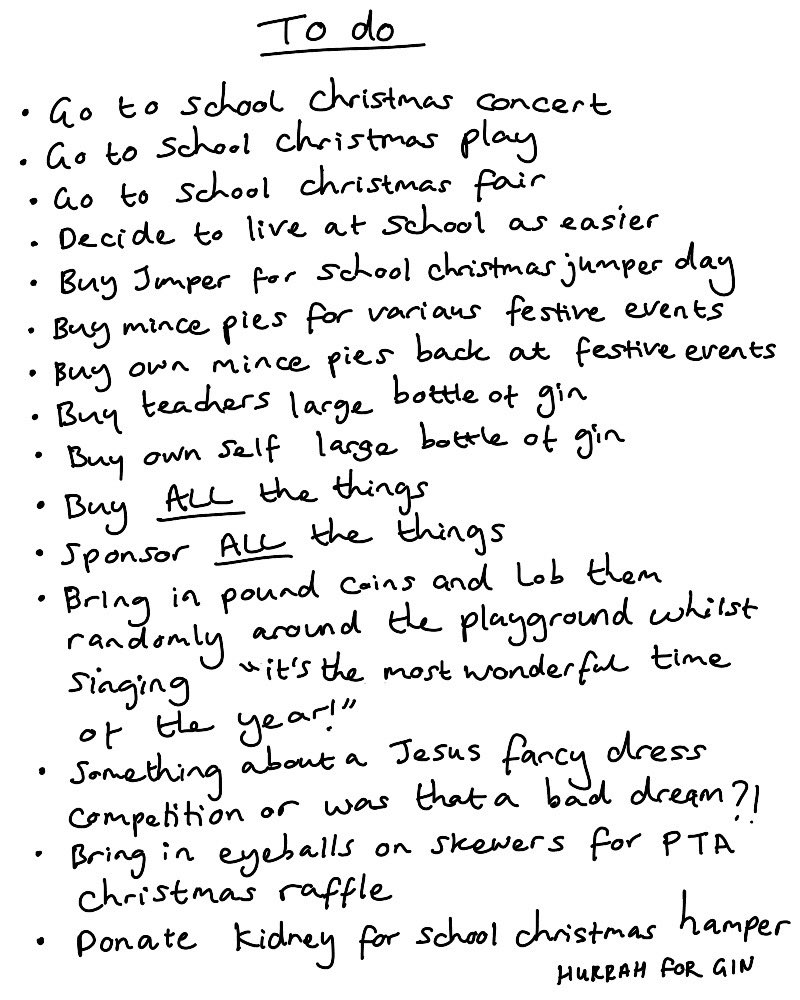 To do
• Go to school christmas concert
• Go to school christmas play
• Go to school christmas fair
• Decide to live at school as easier
• Buy Jumper for school christmas jumper day
• Buy mince pies for various festive events
• Buy own mince pies back at festive events
• Buy teachers large bottle of gin
• Buy own self large bottle of gin
• Buy ALL the things
• Sponsor ALL the things
• Bring in pound coins and lob them
randomly around the playground whilst
singing "it's the most wonderful time
of the year!"
• Something about a Jesus fancy dress
competition or was that a bad dream?!
• Bring in eyeballs on skewers for PTA
christmas raffle
• Donate kidney for school christmas hamper
HURRAH FOR GIN